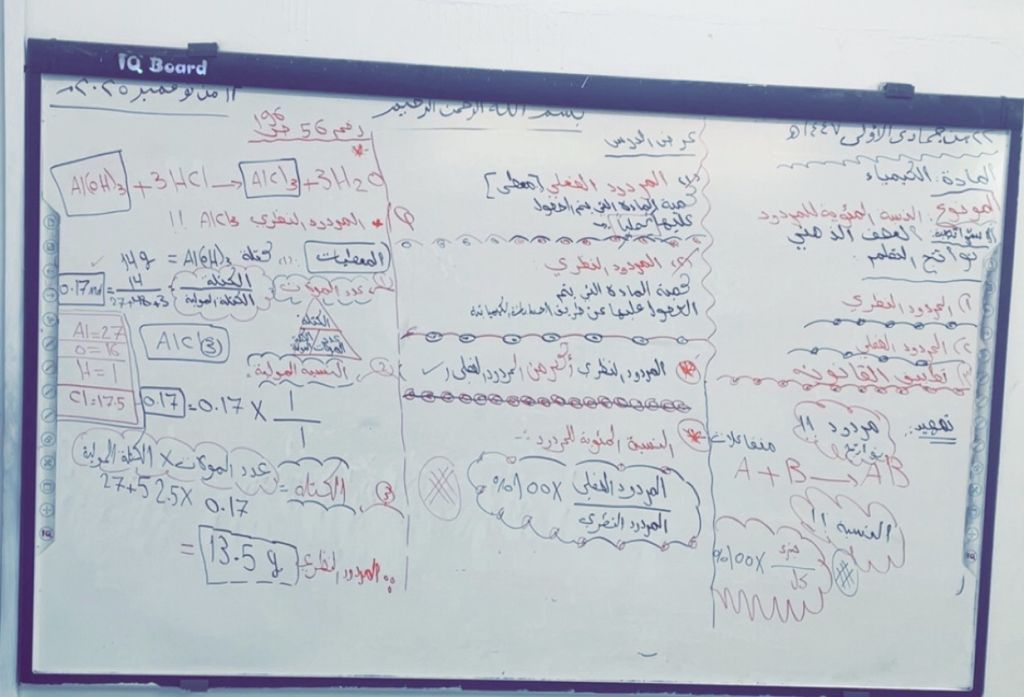 IQ Board
بسم الله الرحمن الرحيم
٢٢ من جمادى الأولى ١٤٤٧هـ
المادة: الكيمياء
الموضوع: النسبة المئوية للمردود
العصف الذهني
نواتج التعلم
١) المردود النظري
٢) المردود الفعلي
٣) تطبيق القانون
تمهيد:
مردود !!
نواتج
متفاعلات
A + B → AB
النسبة !!
جزء
كل
x 100%
عرض الدرس
١) المردود الفعلي [معطى]
كمية المادة التي يتم الحصول
عليها عمليا
٢) المردود النظري
كمية المادة التي يتم
الحصول عليها عن طريق الحسابات الكيميائية
المردود النظري أكبر من المردود الفعلي
النسبة المئوية للمردود :-
المردود الفعلي
المردود النظري
x 100%
١١ من نوفمبر ٢٠٢٥م
رقم 56 ص 196
Al(OH)3 + 3HCl → AlCl3 + 3H2O
المردود النظري AlCl3 !!
المعطيات (١) كتلة Al(OH)3 = 14g
عدد المولات = الكتلة
الكتلة المولية
= 14
27+48+3
= 0.17 mol
الكتلة
عدد المولات
الكتلة المولية
Al = 27
O = 16
H = 1
Cl = 17.5
AlCl3
٢) النسبة المولية:
0.17 = 0.17 x 1
1
٣) الكتلة = عدد المولات x الكتلة المولية
27+52.5 x 0.17
المردود النظري = 13.5 g